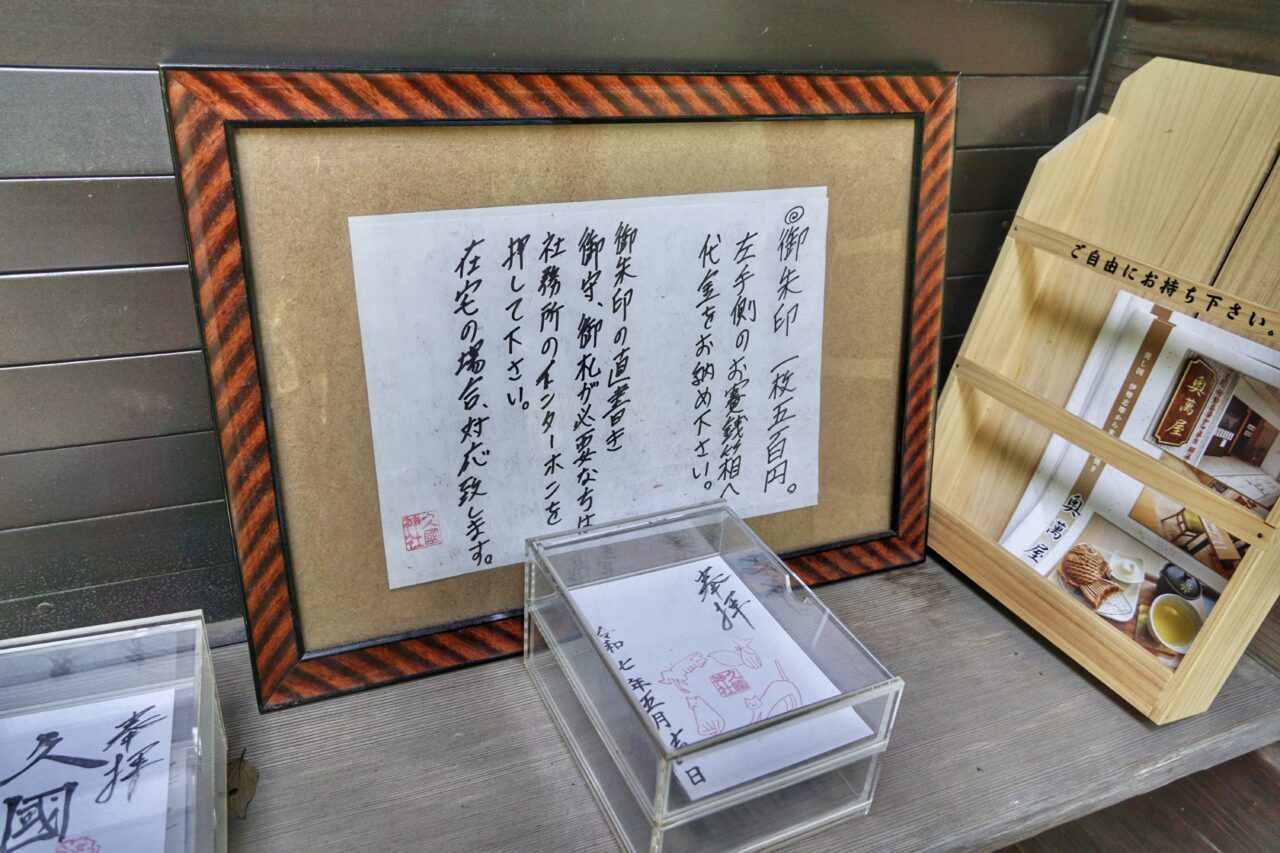 ◎御朱印 一枚五百円。
左手側のお賽銭箱へ
代金をお納め下さい。
御朱印の直書き
御守、御札が必要な方は
社務所のインターホンを
押して下さい。
在宅の場合、対応致します。
久國
神社
奉拝
久國
神社
令和七年五月吉日
奉拝
久國
ご自由にお持ち下さい。
美し国 伊勢志摩から
奥萬屋
奥萬屋